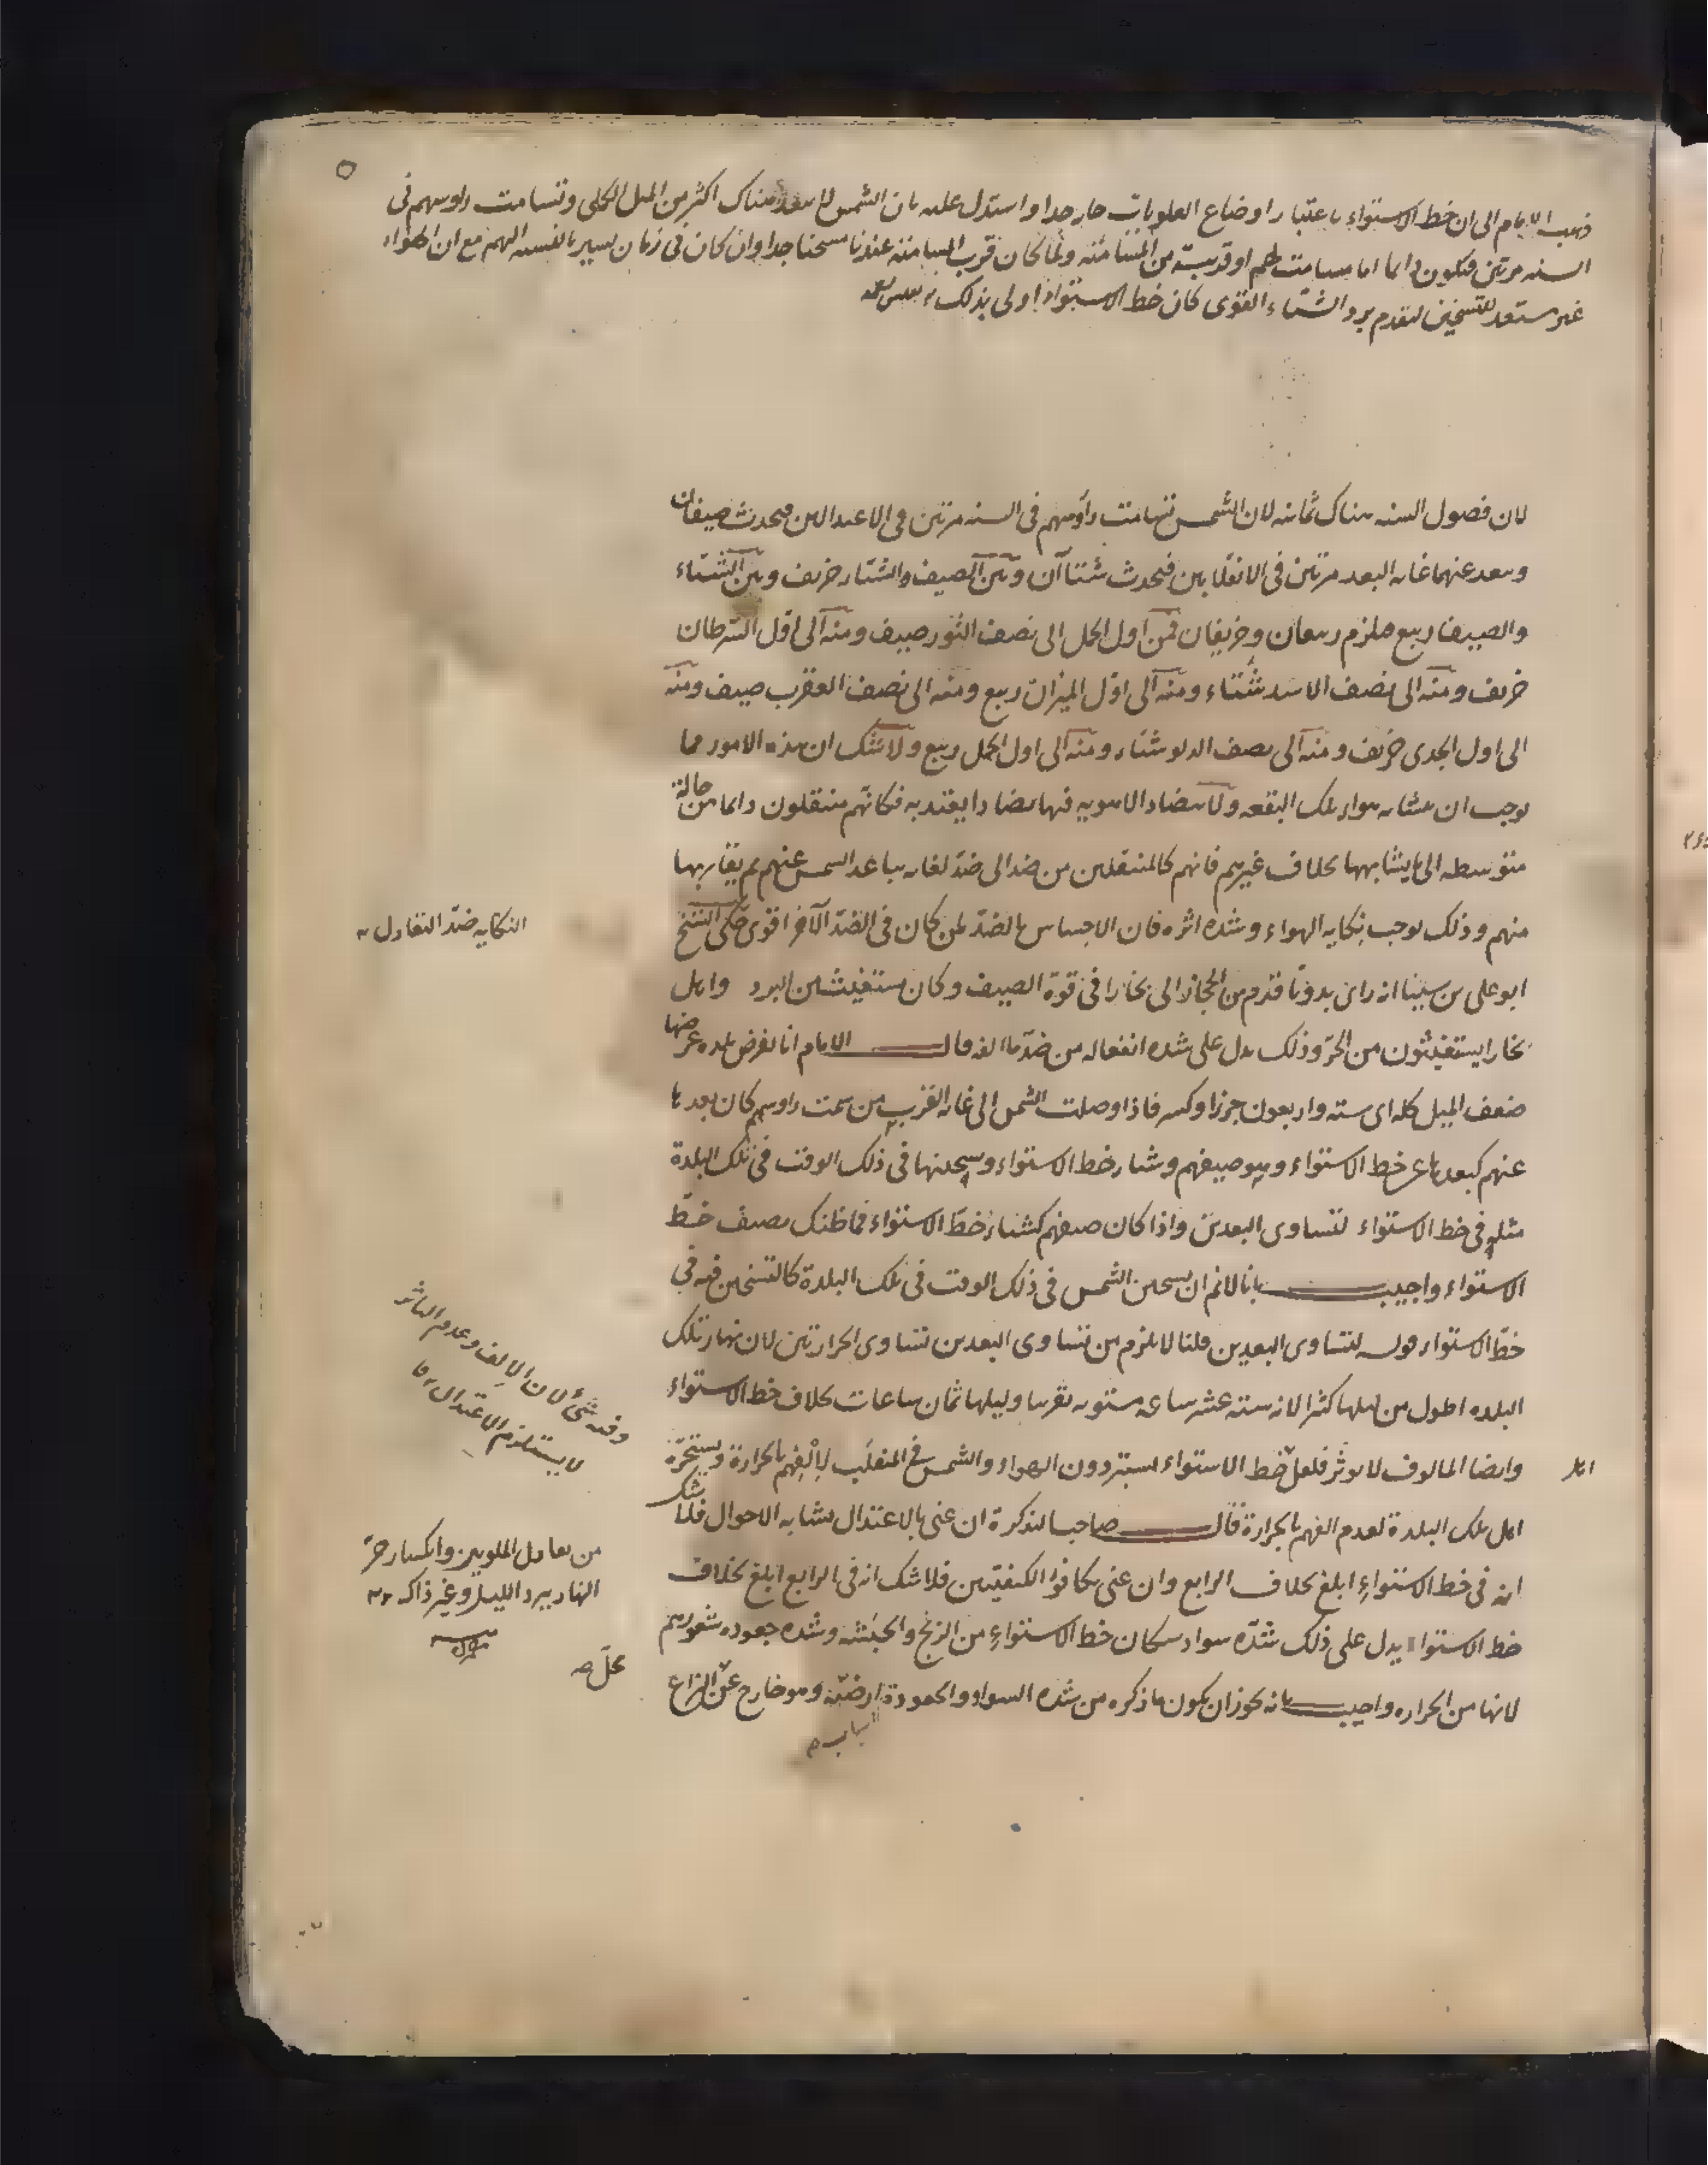 ذهب الامام الى ان خط الاستواء باعتبار اوضاع العلويات حار جدا واستدل عليه بان الشمس لا تبعد هناك اكثر من الميل الكلى وتسامت رؤسهم فى
السنه مرتين فتكون دائما اما مسامتة لهم او قريبة من المسامتة ولما كان قرب المسامتة عندنا مسخنا جدا وان كان فى زمان يسير بالنسبه اليهم مع ان الهواء
غير مستعد للتسخين لتقدم برد الشتاء القوى كان خط الاستواء اولى بذلك
لان فصول السنه هناك ثمانيه لان الشمس تسامت رأوسهم فى السنه مرتين فى الاعتدالين فيحدث صيفان
وتبعد عنهما غايه البعد مرتين فى الانقلابين فيحدث شتاآن وبين الصيف والشتاء خريف وبين الشتاء
والصيف ربيع فيلزم ربيعان وخريفان فمن اول الحمل الى نصف الثور صيف ومنه الى اول السرطان
خريف ومنه الى نصف الاسد شتاء ومنه الى اول الميزان ربيع ومنه الى نصف العقرب صيف ومنه
الى اول الجدى خريف ومنه الى نصف الدلو شتاء ومنه الى اول الحمل ربيع ولا شك ان هذه الامور مما
يوجب ان يتشابه هواء تلك البقعه ولا يتضاد الاهويه فيها تضادا يعتد به فكانهم منتقلون دائما من حالة
متوسطه الى ما يشابهها بخلاف غيرهم فانهم كالمنتقلين من ضد الى ضد لغايه تباعد الشمس عنهم ثم يقاربها
منهم وذلك يوجب نكايه الهواء وشده اثره فان الاحساس بالضد لمن كان فى الضد الآخر اقوى حكى الشيخ
ابو على بن سينا انه راى بدويا قدم من الحجاز الى بخارا فى قوة الصيف وكان يستغيث من البرد واهل
بخارا يستغيثون من الحر وذلك يدل على شده انفعاله من ضد ما الفه قال الامام انا نفرض بلده عرضها
ضعف الميل كله اى سته واربعون جزءا وكسر فاذا وصلت الشمس الى غايه القرب من سمت راوسهم كان بعدها
عنهم كبعدها عن خط الاستواء وهو صيفهم وشتاء خط الاستواء وتسخينها فى ذلك الوقت فى تلك البلدة
مثله فى خط الاستواء لتساوى البعدين واذا كان صيفهم كشتاء خط الاستواء فما ظنك بصيف خط
الاستواء واجيب بانا لا نم ان تسخين الشمس فى ذلك الوقت فى تلك البلدة كالتسخين فيه فى
خط الاستواء قوله لتساوى البعدين قلنا لا يلزم من تساوى البعدين تساوى الحرارتين لان نهار تلك
البلده اطول من ليلها كثيرا لانه سته عشر ساعه مستويه تقريبا وليلها ثمان ساعات بخلاف خط الاستواء
وايضا المالوف لا يوثر فلعل خط الاستواء يستبردون الهواء والشمس فى المنقلب لالفهم بالحرارة ويستحره
اهل
اهل تلك البلدة لعدم الفهم بالحرارة قال صاحب التذكرة ان عنى بالاعتدال تشابه الاحوال فلا شك
انه فى خط الاستواء ابلغ بخلاف الرابع وان عنى تكافوا الكيفيتين فلا شك انه فى الرابع ابلغ بخلاف
خط الاستواء يدل على ذلك شدّه سواد سكان خط الاستواء من الزنج والحبشه وشده جعوده شعورهم
لانها من الحراره واجيب بانه يجوز ان يكون ما ذكره من شده السواد والجعودة
ارضيّه وهو خارج عن النزاع
النكايه ضدّ التعادل
وفيه شئ لان الالف وعدم التأثر
لا يستلزم الاعتدال
من تعادل الملوين وانكسار حرّ
النهار ببرد الليل وغير ذاك